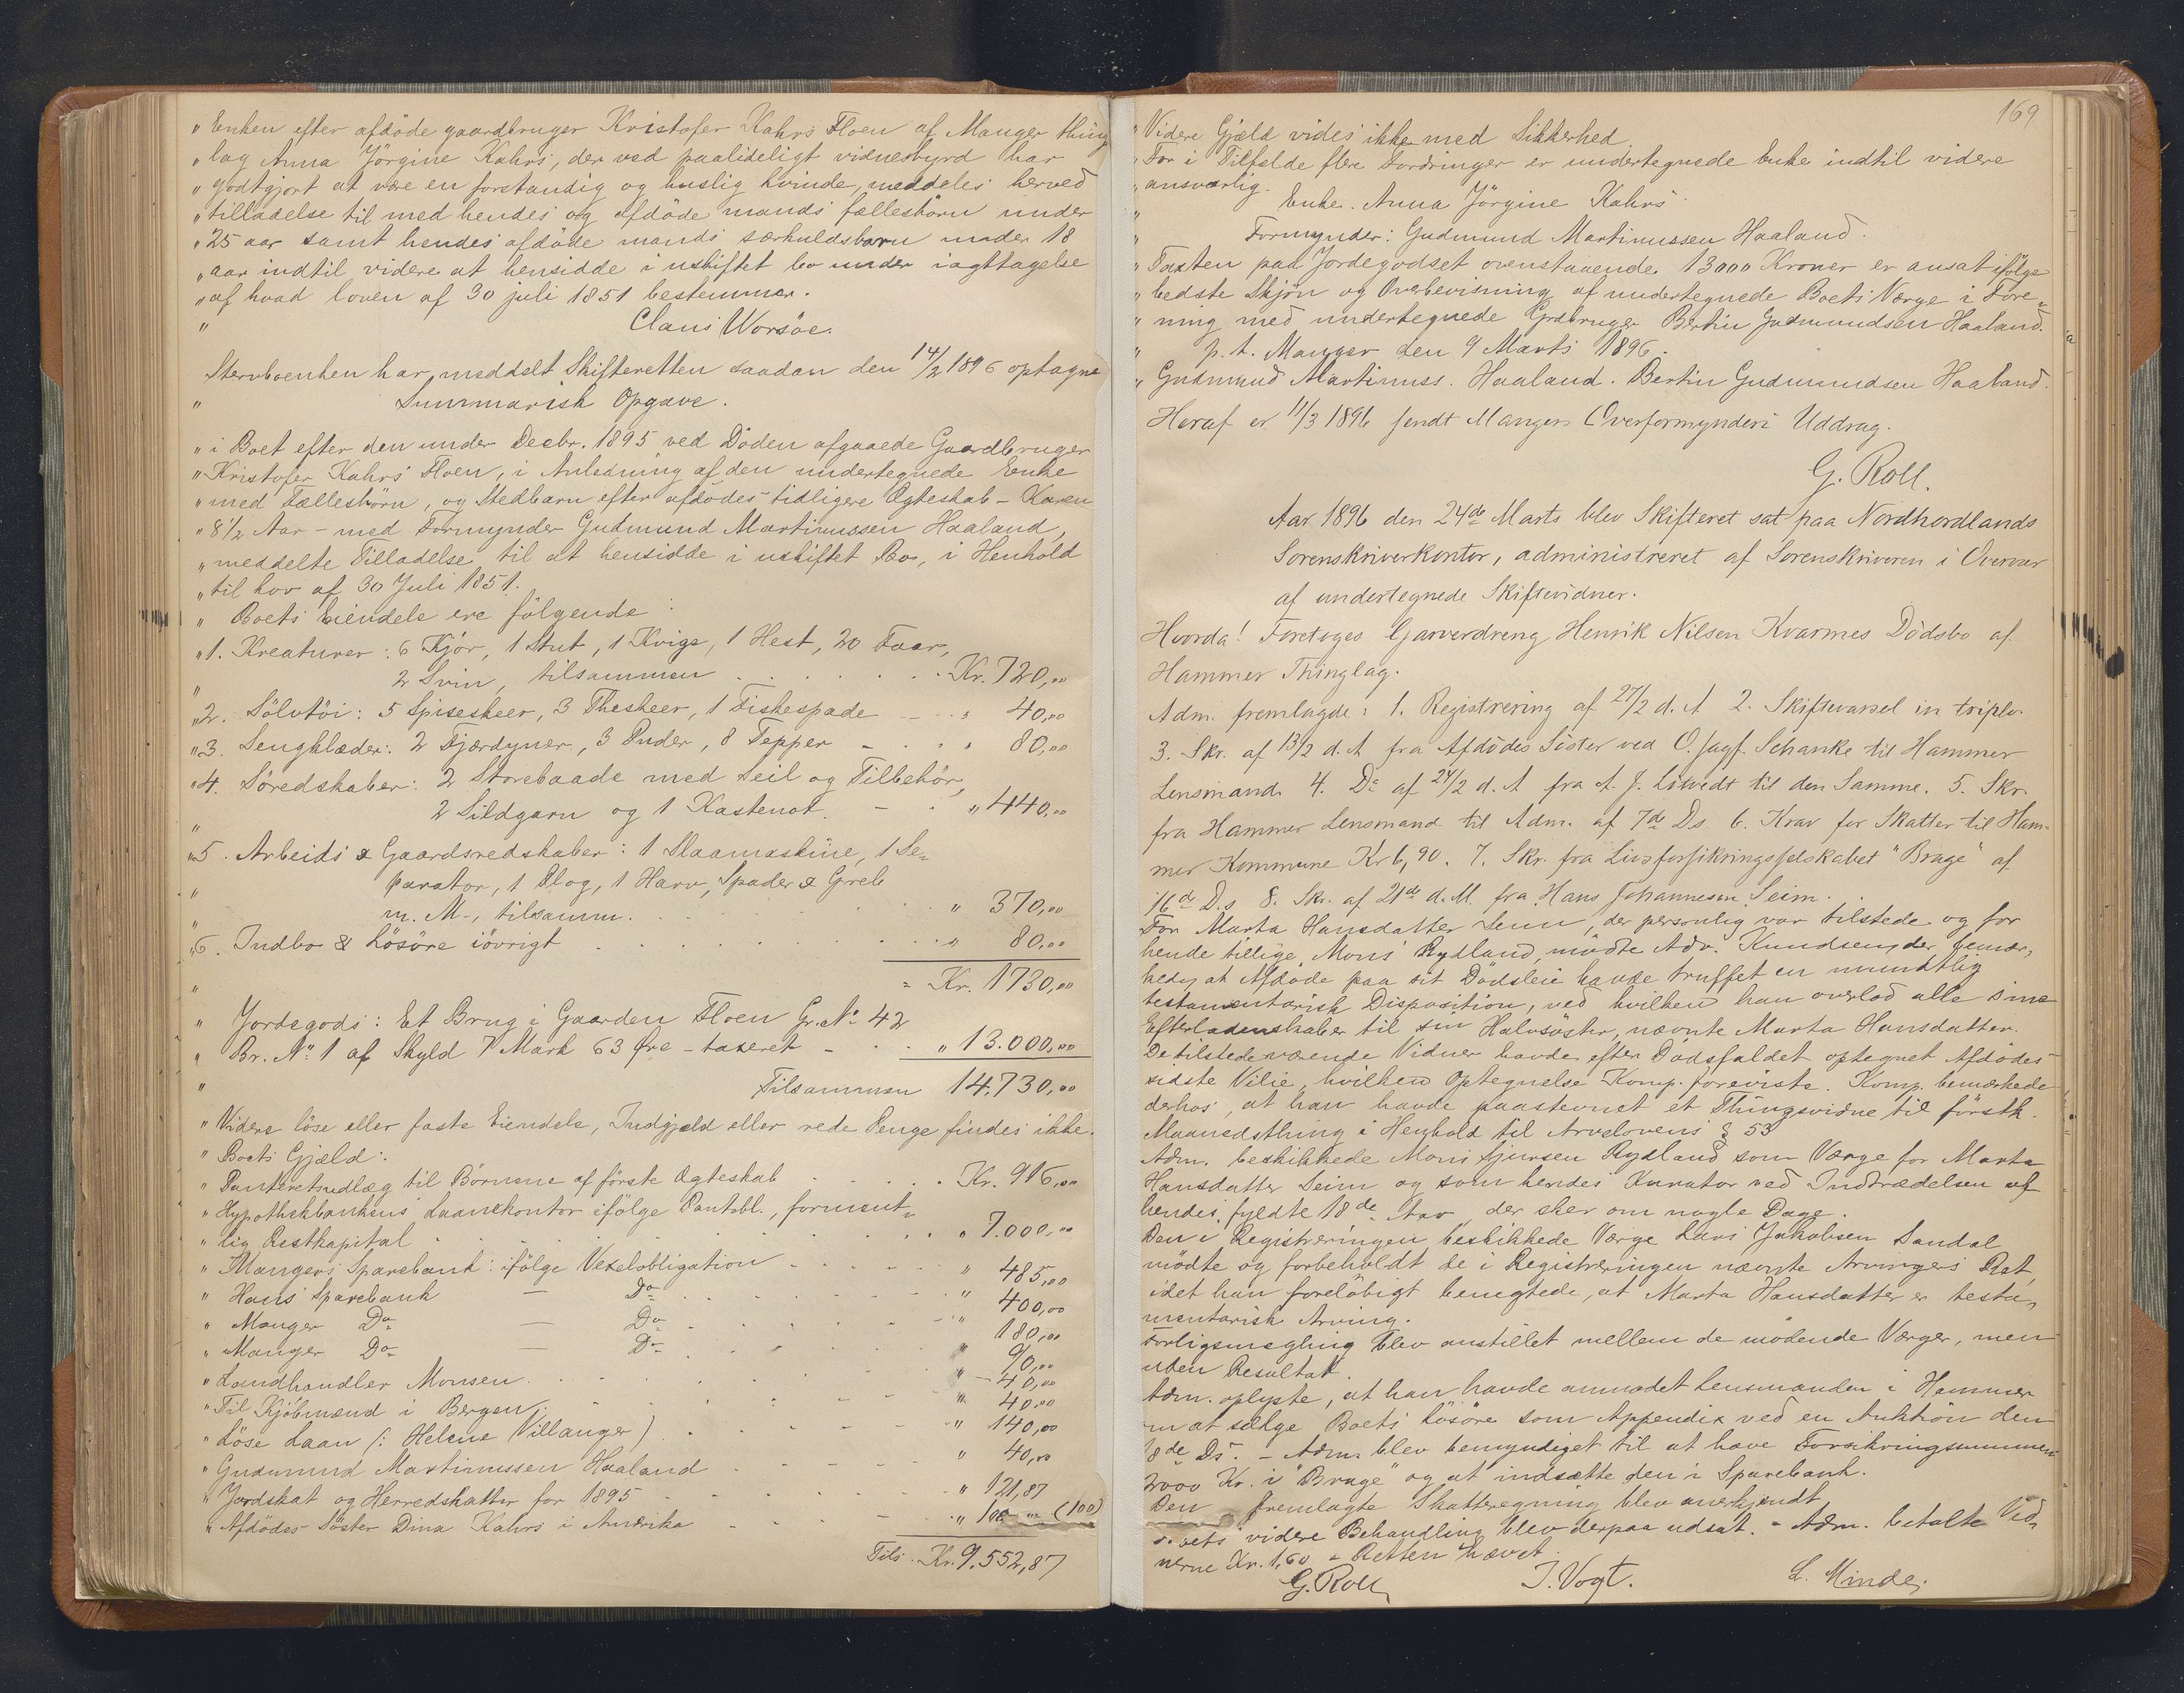 " Enken efter afdöde gaardbruger Kristofer Kahrs Floen af Manger thing
" lag Anna Jörgine Kahrs, der ved paalideligt vidnesbyrd har
" godtgjort at være en forstandig og huslig kvinde, meddeles herved
" tilladelse til med hendes og afdöde mands fællesbörn under
" 25 aar samt hendes afdöde mands særkuldsbarn under 18
" aar indtil videre at hensidde i uskiftet bo under iagttagelse
" af hvad loven af 30 juli 1851 bestemmer.
" Claus Worsöe.
Stervboenken har meddelt Skifteretten saadan den 14/2 1896 optagne
" Summarisk Opgave.
" i Boet efter den under Decbr. 1895 ved Döden afgaaede Gaardbruger
" Kristofer Kahrs Floen, i Anledning af den undertegnede Enke
" med Fællesbörn, og Stedbarn efter afdödes tidligere Ægteskab - Karen
" 8 1/2 Aar - med Formynder Gudmund Martinussen Haaland,
" meddelte Tilladelse til at hensidde i uskiftet Bo, i Henhold
" til Lov af 30 Juli 1851.
" Boets Eiendele ere fölgende :
" 1. Kreaturer : 6 Kjör, 1 Stut, 1 Kvige, 1 Hest, 20 Faar,
" 2 Svin, tilsammen . . . . . . . Kr. 720,00
" 2. Sölvtöi : 5 Spiseskeer, 3 Theskeer, 1 Fiskespade - - . " 40,00
" 3. Sengklæder : 2 Fjærdyner, 3 Puder, 8 Tepper - . . " 80,00
" 4. Söredskaber : 2 Storebaade med Seil og Tilbehör,
" 2 Sildgarn og 1 Kastenot. - . " 440,00
" 5. Arbeids & Gaardsredskaber : 1 Slaamaskine, 1 Se„
" parator, 1 Plog, 1 Harv, Spader & Greb
" m. M-, tilsamm. . . . . . " 370,00
" 6. Indbo & Lösöre iövrigt . . . . . . . " 80,00
" = Kr. 1730,00
" Jordegods : Et Brug i Gaarden Floen Gr. No 42
" Br. No 1 af Skyld 7 Mark 63 Øre - taxeret - . . " 13.000,00
" Tilsammen 14.730,00
" Videre löse eller faste Eiendele, Indgjæld eller rede Penge findes ikke.
" Boets Gjæld :
" Panteretsudlæg til Börnene af förste Ægteskab . . . . Kr. 916,00
" Hypothekbankens Laanekontor ifölge Pantobl., forment„
" lig Restkapital . . . . . . . . " 7.000,00
" Mangers Sparebank : ifölge Vexelobligation . . . . . " 485,00
" Haus Sparebank — Do . . . . . " 400,00
" Manger Do — Do . . . . . " 180,00
" Manger Do — Do . . . . . " 90,00
" Landhandler Monsen . . . . . . " 40,00
" Til Kjöbmænd i Bergen . . . . . " 40,00
" Löse Laan (: Helene Villanger) . . . . " 140,00
" Gudmund Martinussen Haaland . . . . " 40,00
" Jordskat og Herredskatter for 1895 . . . . " 121,87
" Afdödes Söster Dina Kahrs i Amerika . . . . " 100 " (100)
Tils. Kr. 9.552,87
169
" Videre Gjæld vides ikke med Sikkerhed
" For i Tilfælde flere Fordringer er undertegnede Enke indtil videre
" ansvarlig.
" Enke. Anna Jörgine Kahrs.
" Formynder : Gudmund Martinussen Haaland.
" Taxten paa Jordegodset ovenstaaende 13000 Kroner er ansat ifölge
" bedste Skjön og Overbevisning af undertegnede Boets Værge i Fore„
" ning med undertegnede Grdbruger Bertin Gudmundsen Haaland.
" p. t. Manger den 9 Marts 1896.
" Gudmund Martinuss. Haaland. Bertin Gudmundsen Haaland.
Heraf er 11/3 1896 sendt Mangers Overformynderi Uddrag.
G. Roll.
Aar 1896 den 24de Marts blev Skifteret sat paa Nordhordlands
Sorenskriverkontor, administreret af Sorenskriveren i Overvær
af undertegnede Skiftevidner.
Hvorda! Foretoges Garverdreng Henrik Nilsen Kvarmes Dödsbo af
Hammer Thinglag.
Adm. fremlagde : 1. Registrering af 27/2 d. A 2. Skiftevarsel in triplo.
3. Skr. af 13/2 d. A fra Afdödes Söster ved O. Sagf. Schanke til Hammer
Lensmand. 4. Do af 24/2 d. A fra A. J. til den Samme. 5. Skr.
fra Hammer Lensmand til Adm. af 7de Ds 6. Krav for Skatter til Ham-
mer Kommune Kr 6,90. 7. Skr. fra Livsforsikringsselskabet "Brage" af
16de D.s 8. Skr. af 21de d. M. fra Hans Johannesen Seim.
For Marta Hansdatter Seim, der personlig var tilstede og for
hende tillige Mons Rydland, mödte Adv. Knudsen, der bemær„
kede, at Afdöde paa sit Dödsleie havde truffet en mundtlig
testamentarisk Disposition, ved hvilken han overlod alle sine
Efterladenskaber til sin Halvsöster, nævnte Marta Hansdatter.
De tilstedeværende Vidner havde efter Dödsfaldet optegnet Afdödes
sidste Vilie, hvilken Optegnelse Komp. foreviste. Komp. bemærkede
derhos, at han havde paastevnet et Thingsvidne til förstk.
Maanedsthing i Henhold til Arvelovens § 53
Adm. beskikkede Mons Sjursen Rydland som Værge for Marta
Hansdatter Seim og som hendes Kurator ved Indtrædelsen af
hendes fyldte 18de Aar, der sker om nogle Dage.
Den i Registreringen beskikkede Værge Lars Jakobsen Sandal
mödte og forbeholdt de i Registreringen nævnte Arvingers Ret,
idet han foreløbigt benegtede, at Marta Hansdatter er testa„
mentarisk Arving.
Forligsmægling blev anstillet mellem de mödende Værger, men
uden Resultat.
Adm. oplyste, at han havde anmodet Lensmanden i Hammer
om at sælge Boets Lösöre som Appendix ved en Auktion den
18de Ds. - Adm. blev bemyndiget til at hæve Forsikringssummen
2000 Kr. i "Brage" og at indsætte den i Sparebank.
Den fremlagte Skatteregning blev anerkjendt
videre Behandling blev derpaa udsat. - Adm. betalte Vid„
nerne Kr. 1,60 - Retten hævet.
G. Roll J. Vogt. L. Minde.